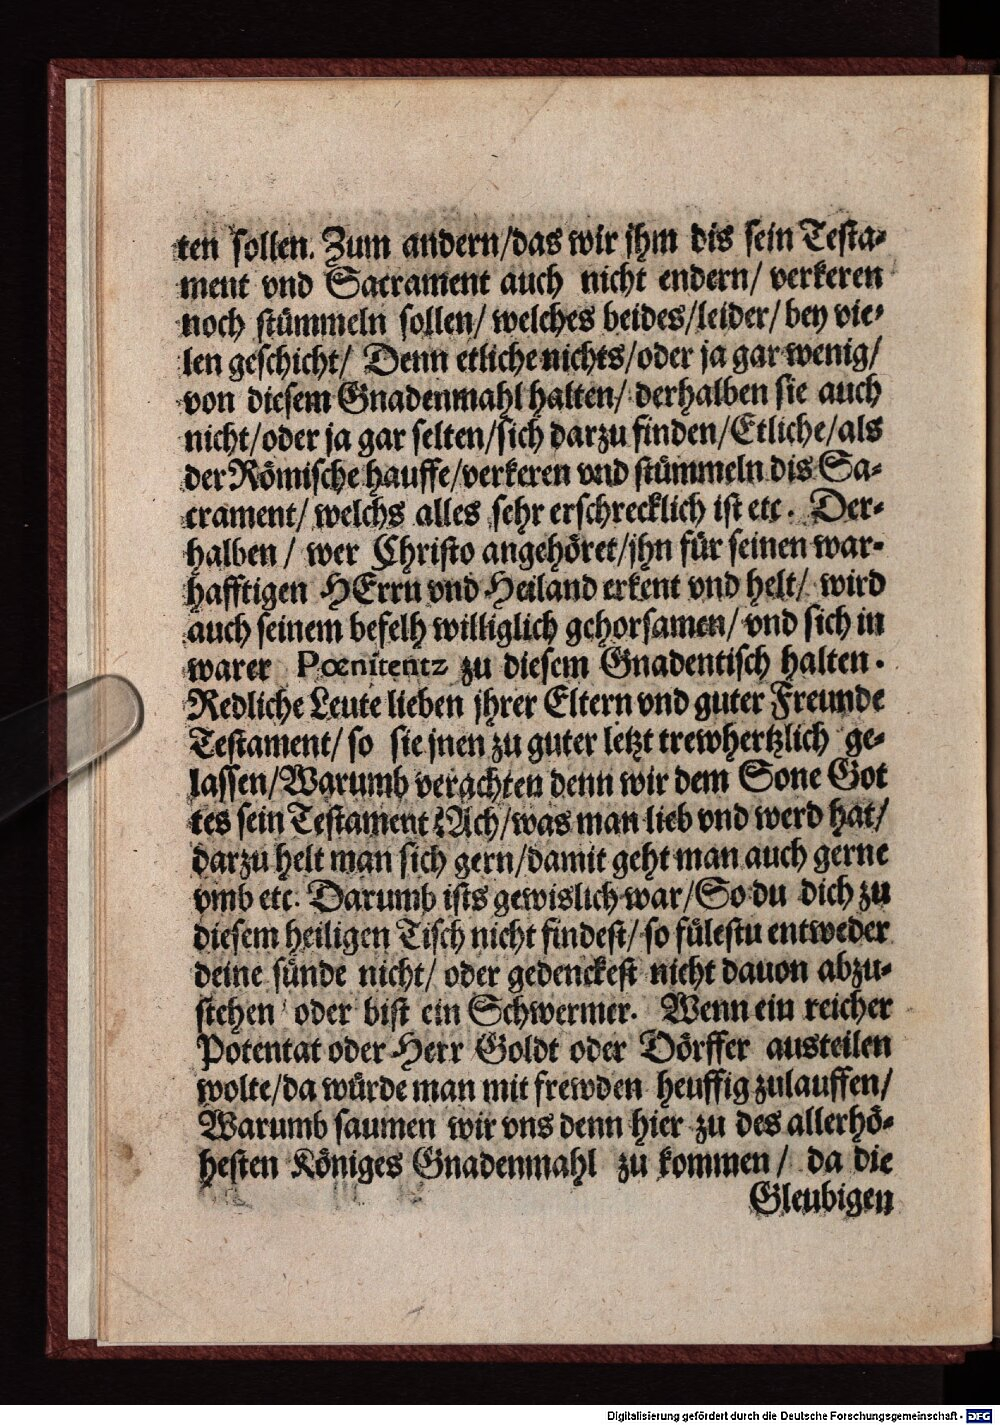 ten sollen. Zum andern/das wir jhm dis sein Testa-
ment vnd Sacrament auch nicht endern/ verkeren
noch stümmeln sollen/ welches beides/leider/ bey vie-
len geschicht/ Denn etliche nichts/oder ja gar wenig/
von diesem Gnadenmahl halten/ derhalben sie auch
nicht/oder ja gar selten/sich darzu finden/Etliche/als
der Römische hauffe/verkeren vnd stümmeln dis Sa-
crament/ welchs alles sehr erschrecklich ist etc. Der-
halben / wer Christo angehöret/jhn für seinen war-
hafftigen HErrn vnd Heiland erkent vnd helt/ wird
auch seinem befelh williglich gehorsamen/ vnd sich in
warer Pœnitentz zu diesem Gnadentisch halten.
Redliche Leute lieben jhrer Eltern vnd guter Freunde
Testament/ so sie jnen zu guter letzt trewhertzlich ge-
lassen/Warumb verachten denn wir dem Sone Got
tes sein Testament? Ach/was man lieb vnd werd hat/
darzu helt man sich gern/damit geht man auch gerne
vmb etc. Darumb ists gewislich war/So du dich zu
diesem heiligen Tisch nicht findest/ so fülestu entweder
deine sünde nicht/ oder gedenckest nicht dauon abzu-
stehen oder bist ein Schwermer. Wenn ein reicher
Potentat oder Herr Goldt oder Dörffer austeilen
wolte/da würde man mit frewden heuffig zulauffen/
Warumb saumen wir vns denn hier zu des allerhö-
hesten Königes Gnadenmahl zu kommen/ da die
Gleubigen
Digitalisierung gefördert durch die Deutsche Forschungsgemeinschaft - DFG